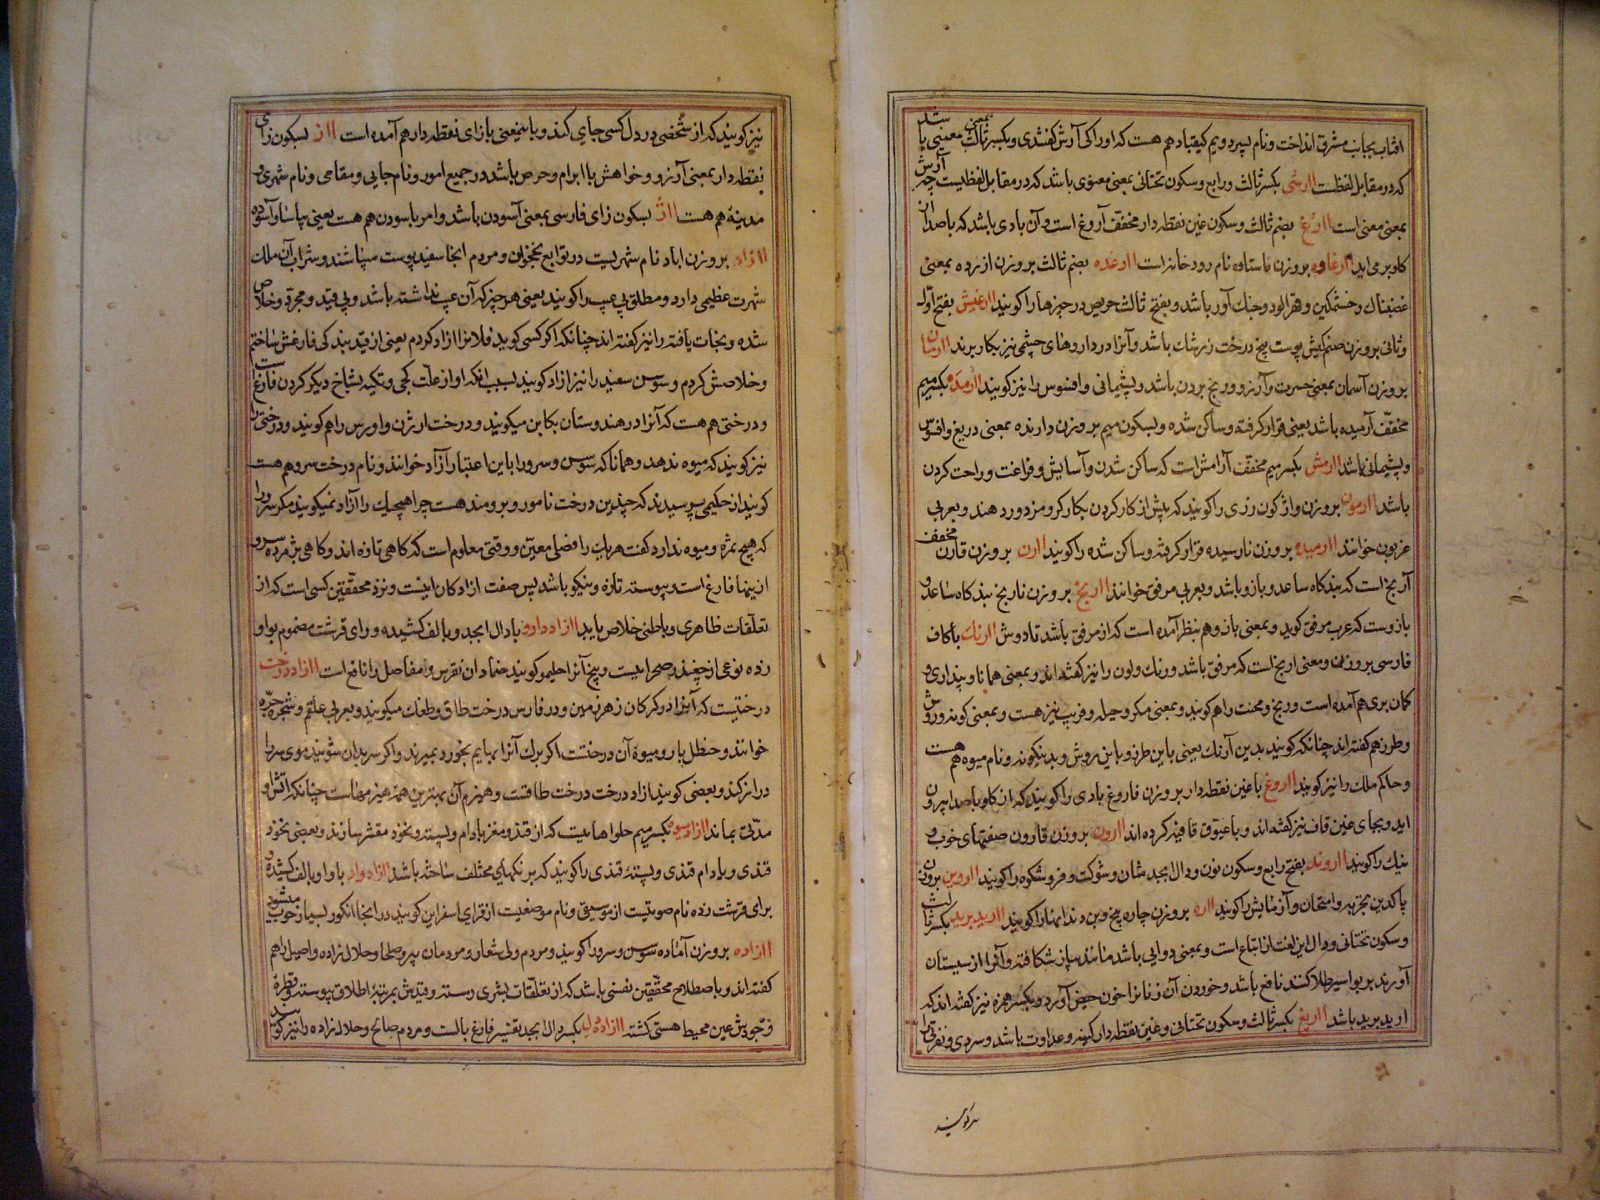 افتاب بجانب مشرق انداخت و نام پسر دویم کیقباد هم هست که او را کی آرش گفتندی و بکسر ثالث بمعنی معنی باشد
که در مقابل لفظست اارشی بکسر ثالث و رابع و سکون تحتانی بمعنی معنوی باشد که در مقابل لفظیست چه آرش
بمعنی معنی است اارغ بضم ثالث و سکون غین نقطه دار مخفف آروغ است و آن بادی باشد که باصدا از
کلو بر می آید اارغاوه بر وزن ناستاوه نام رودخانه است اارغده بضم ثالث بر وزن ازرده بمعنی
غضبناک و خشمکین و قهرالود و جنک آور باشد و بفتح ثالث حریص در چیزها را کویند اارغیش بفتح اول
و ثانی بر وزن صنم کیش پوست بیخ درخت زرشک باشد و آنرا در داروهای چشمی نیز بکار برند اارسان
بر وزن آسان بمعنی حسرت و آرزو و رنج بردن باشد و پشیمانی و افسوس را نیز کویند اارمده بکسر میم
مخفف آرمیده باشد یعنی قرار کرفته و ساکن شده و بسکون میم بر وزن دارنده بمعنی دریغ و افسوس
و پشیمانی باشد اارمش بکسر میم مخفف آرامش است که ساکن شدن و آسایش و فراغت و راحت کردن
باشد اارمون بر وزن واژکون زری را کویند که پیش از کار کردن بکارکر و مزدور دهند و بعربی
عربون خوانند اارمیده بر وزن نارسیده قرار کرفته و ساکن شده را کویند اارن بر وزن قارن مخفف
آرنج است که بندکاه ساعد و بازو باشد و بعربی مرفق خوانند اارنج بر وزن نارنج بندکاه ساعد و
بازوست که عرب مرفق کوید و بمعنی بازو هم بنظر آمده است که از مرفق باشد تا دوش اارنک با کاف
فارسی بر وزن و معنی ارنج است که مرفق باشد و رنک و لون را نیز کفته اند و بمعنی همانا و پنداری و
کمان بری هم آمده است و رنج و محنت را هم کویند و بمعنی مکر و حیله و فریب نیز هست و بمعنی کونه و روش
و طرز هم کفته اند چنانکه کویند بدین آرنک یعنی باین طرز و باین روش و بدینکونه و نام میوه هم هست
و حاکم ملک را نیز کویند ااروغ با غین نقطه دار بر وزن فاروغ بادی را کویند که از کلو باصدا بیرون
اید و بجای غین قاف نیز کفته اند و با عیوق قافیه کرده اند اارون بر وزن قارون صفتهای خوب و
نیک را کویند ااروند بفتح رابع و سکون نون و دال ابجد شان و شوکت و فر و شکوه را کویند ااروین بر وزن
پاک دین تجربه و امتحان و آزمایش را کویند ااره بر وزن چاره بیخ و بن دندانها را کویند اارید برید بکسر ثالث
و سکون تحتانی و دال این لغت از اتباع است و بمعنی دوایی باشد مانند پیاز شکافته و آنرا از سیستان
آورند بر بواسیر طلا کنند نافع باشد و خوردن آن زنانرا خون حیض آورد و بکسر همزه نیز کفته اند که
ارید برید باشد ااریغ بکسر ثالث و سکون تحتانی و غین نقطه دار کینه و عداوت باشد و سردی و نفرتی را
نیز کویند
نیز کویند که از شخصی در دل کسی جای کند و باینمعنی بازای نقطه دار هم آمده است ااز بسکون زای
نقطه دار بمعنی آرزو و خواهش با ابرام و حرص باشد در جمیع امور و نام جایی و مقامی و نام شهری و
مدینه هم هست ااژ بسکون زای فارسی بمعنی آسودن باشد و امر باسودن هم هست یعنی بیاسا و آسوده
اازاد بر وزن اباد نام شهریست در توابع نخجوان و مردم انجا سفید پوست میباشند و شراب آن ملک
شهرت عظیمی دارد و مطلق بی عیب را کویند یعنی هر چیز که آن عیب نداشته باشد و بی قید و مجرد و خلاص
شده و نجات یافته را نیز کفته اند چنانکه اکر کسی کوید فلانرا ازاد کردم یعنی از قید بندکی فارغش ساختم
و خلاصش کردم و سوسن سفید را نیز ازاد کویند بسبب انکه او از علت کجی و تکیه بشاخ دیکر کردن فارغ است
و درختی هم هست که آنرا در هندوستان بکاین میکویند و درخت ارژن و اورس را هم کویند و درختی را
نیز کویند که میوه ندهد و همانا که سوسن و سرو را باین اعتبار آزاد خوانند و نام درخت سرو هم هست
کویند از حکیمی پرسیدند که چندین درخت نامور و برومند هست چرا هیچیک را آزاد نمیکویند مکر سرو را
که هیچ ثمره و میوه ندارد کفت هریک را فصلی معین و وقتی معلوم است که کاهی تازه اند و کاهی پژمرده سرو
ازینها فارغ است و پیوسته تازه و نیکو باشد پس صفت ازادکان اینست و نزد محققین کسی است که از
تعلقات ظاهری و باطنی خلاص یابد اازاددارو با دال ابجد و بالف کشیده و رای قرشت مضموم بواو
زده نوعی از چغندر صحراییست و بیخ آنرا احلیمو کویند ضماد آن نقرس و مفاصل را نافع است اازاددرخت
درختیست که آنرا در کرکان زهر زمین و در فارس درخت طاق و طغک میکویند و بعربی علقم و شجره حره
خوانند و حنظل بار و میوه آن درختست اکر برک آنرا بهایم بخورد بمیرند و اکر سر بدان شویند موی سر را
دراز کند و بعضی کویند ازاد درخت درخت طاقست و هیزم آن بهترین همه هیزمهاست چنانکه آتش او
مدتی بماند اازادمیوه بکسر میم حلواهاییست که از قند و مغز بادام و پسته و نخود مقشر سازند و بعضی نخود
قندی و بادام قندی و پسته قندی را کویند که برنکهای مختلف ساخته باشد اازادوار با واو بالف کشیده
برای قرشت زده نام صوتیست از موسیقی و نام موضعیست از قرای اسفراین کویند در انجا انکور بسیار خوب میشود
اازاده بر وزن آماده سوسن و سرو را کویند و مردم ولی شعار و مردمان بیرو طفل و حلال زاده و اصیل را هم
کفته اند و باصطلاح محققین نفسی باشد که از تعلقات بشری رسته و قیدش بمرتبه اطلاق پیوسته و قطره
وجودش عین محیط هستی کشته اازاده دل بکسر دال ابجد بتفسیر فارغ بالست و مردم صالح و حلال زاده را نیز کویند